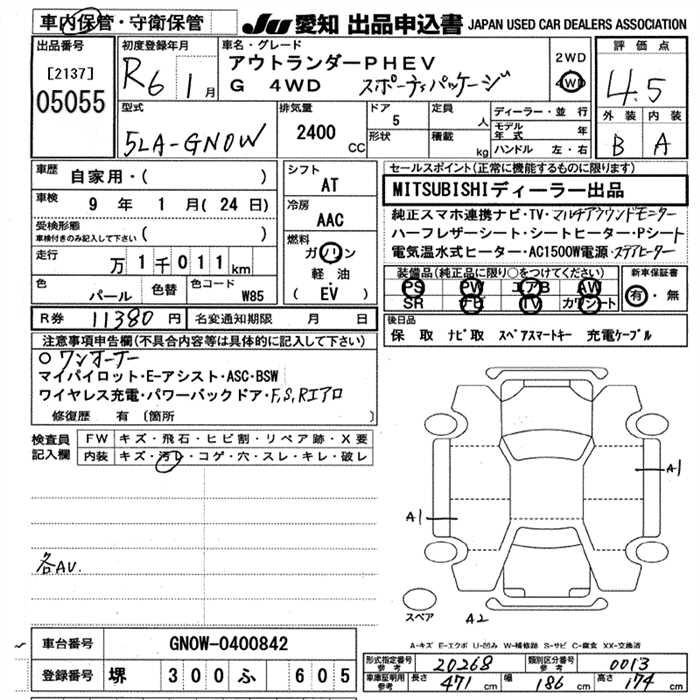 車内保管・守衛保管
JU 愛知 出品申込書 JAPAN USED CAR DEALERS ASSOCIATION
出品番号 [2137] 05055
初度登録年月 R6 1月
車名・グレード アウトランダーPHEV
G 4WD スポーティパッケージ
2WD 4WD
評価点 4.5
外装 B 内装 A
型式 5LA-GN0W
排気量 2400 CC
ドア 5 形状
定員 人 積載 kg
ディーラー・並行
モデル年式 年
ハンドル 左・右
車歴 自家用・( )
車検 9年 1月(24日)
受検形態 車検付きのみ記入して下さい ( )
走行 万1千011km
色 パール 色替 色コード W85
シフト AT
冷房 AAC
燃料 ガソリン 軽油 (EV)
セールスポイント(正常に機能するものに限ります)
MITSUBISHIディーラー出品
純正スマホ連携ナビ・TV・マルチアラウンドモニター
ハーフレザーシート・シートヒーター・Pシート
電気温水式ヒーター・AC1500W電源・ステアヒーター
装備品(純正品に限り○をつけてください)
PS PW エアB AW
SR ナビ TV カワシート
新車保証書 有・無
R券 11380円 名変通知期限 月 日
後日品
保 取 ナビ取 スペアスマートキー 充電ケーブル
注意事項申告欄(不具合内容等は具体的に記入して下さい)
○ワンオーナー
マイパイロット・E-アシスト・ASC・BSW
ワイヤレス充電・パワーバックドア・F,S,Rエアロ
修復歴 有(箇所 )
検査員記入欄
FW キズ・飛石・ヒビ割・リペア跡・X要
内装 キズ・汚レ・コゲ・穴・スレ・キレ・破レ
各AU.
A1
A1
スペア
A2
A-キズ E-エクボ U-凹み W-補修跡 S-サビ C-腐食 XX-交換済
車台番号 GN0W-0400842
登録番号 堺 300 ふ 605
形式指定番号 参考 20268 類別区分番号 参考 0013
車庫証明用 参考 長さ 471 cm 幅 186 cm 高さ 174 cm